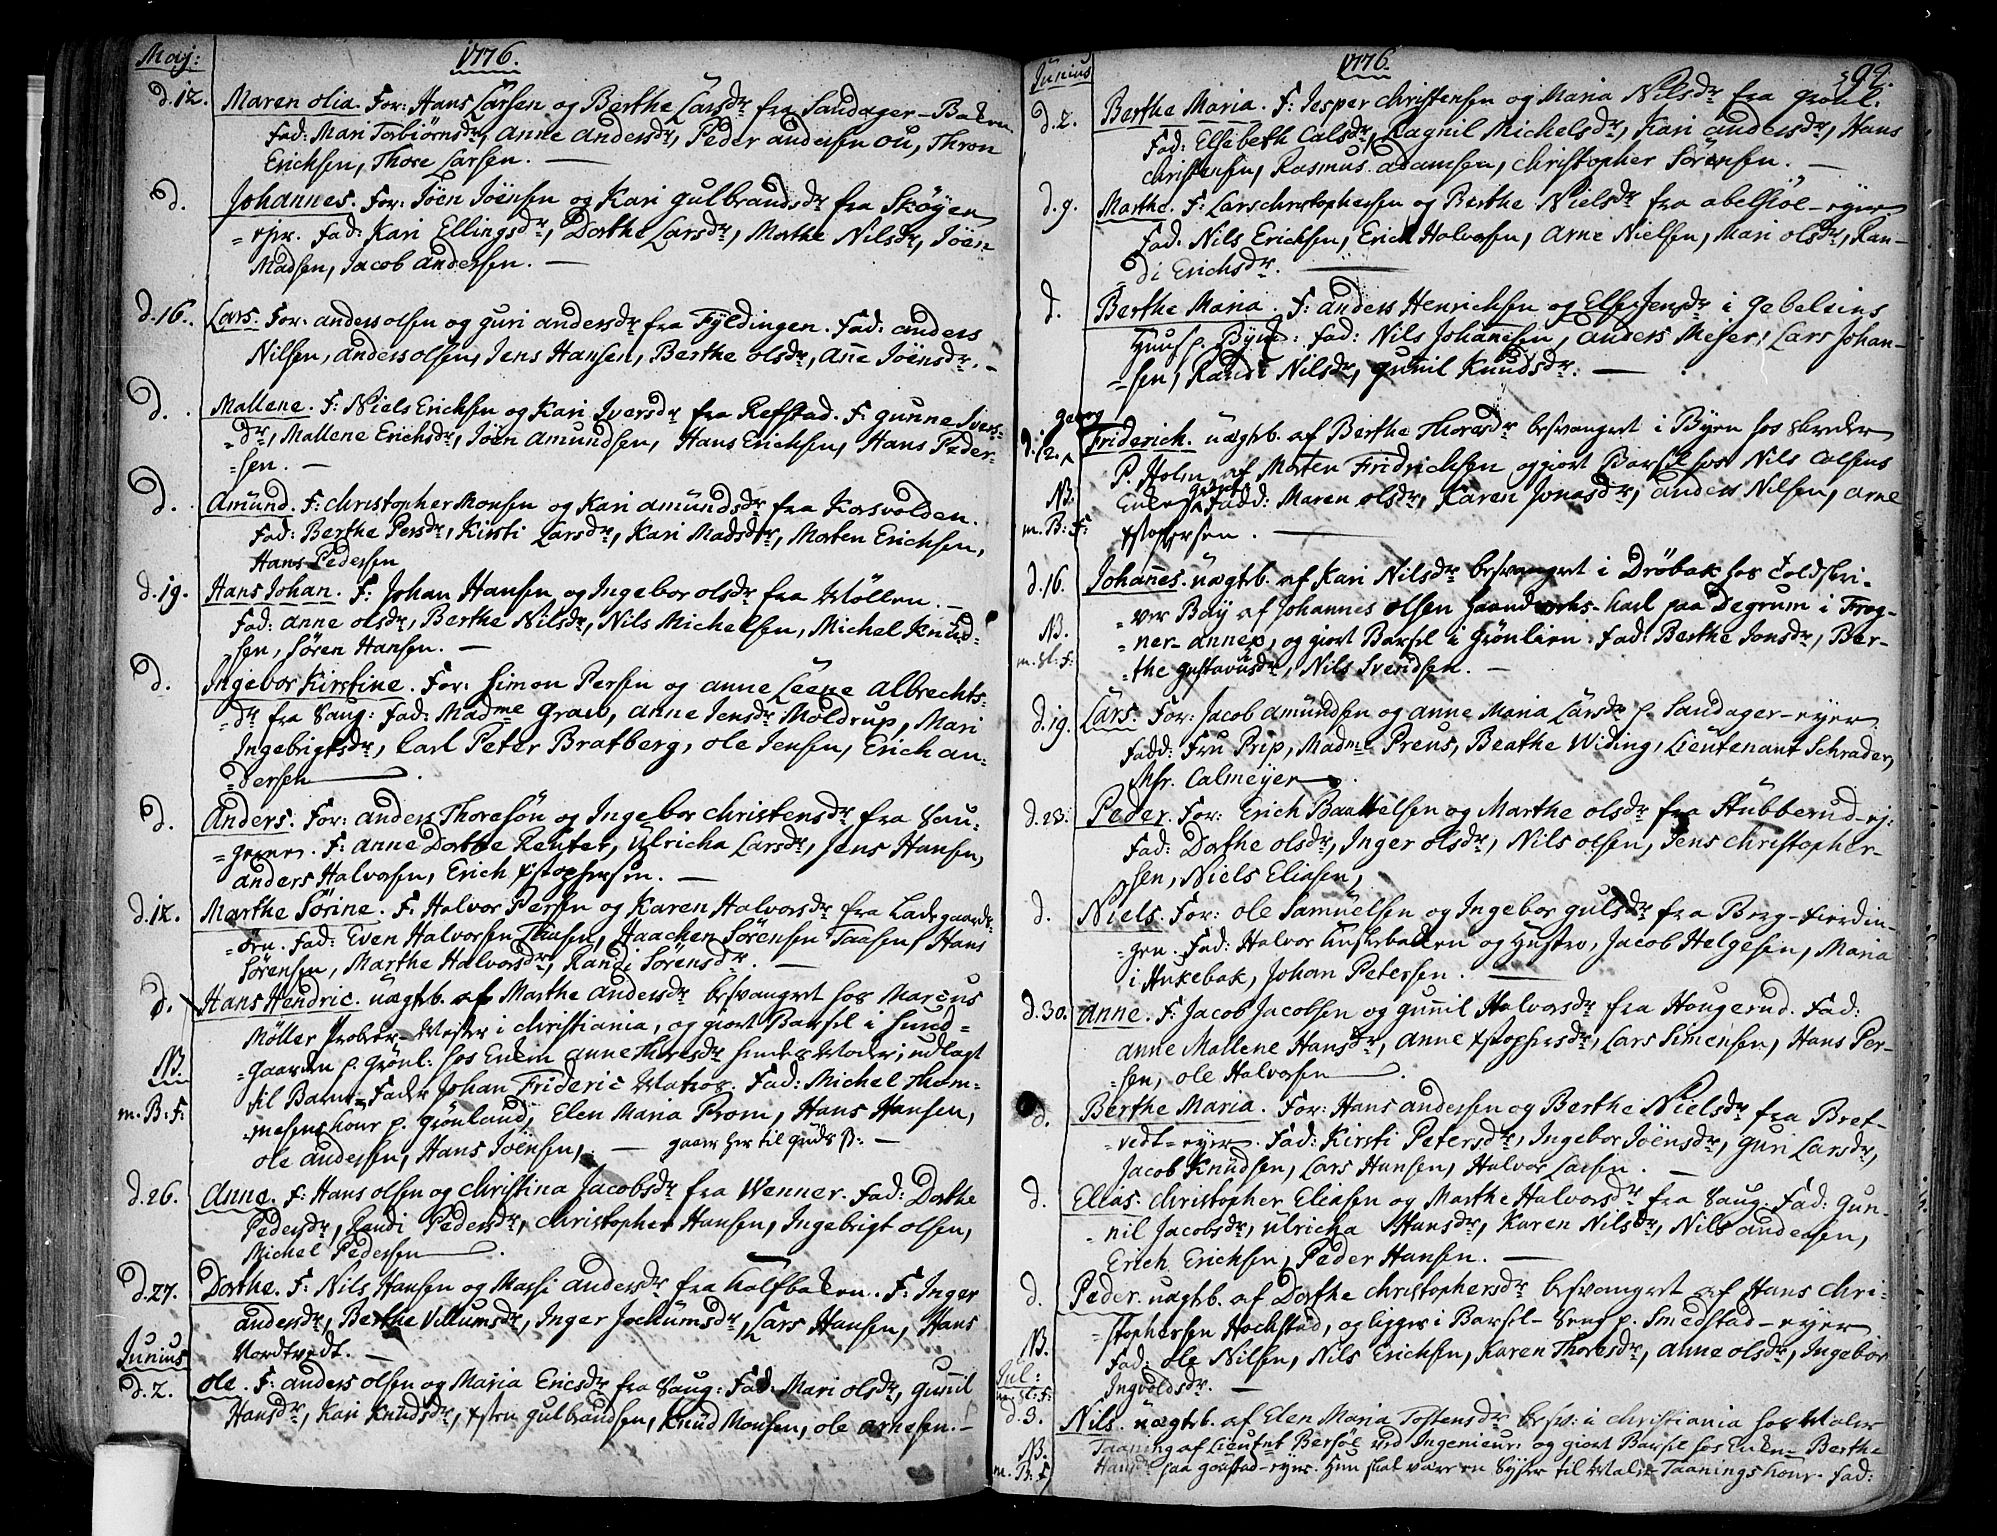 Maj: 1776.
d.12. Maren olia. For: Hans Larsen og Berthe Larsdr fra Sandager-Baken
Fad: Mari Torbiørnsdr, Anne Andersdr, Peder Andersen ou, Thron
Erichsen, Thore Larsen. —
d. Johannes. For: Jöen Jöensen og Kari Gulbrandsdr fra Skøyen
=ejer. Fad: Kari Ellingsdr, Dorthe Larsdr, Marthe Nilsdr, Jöen
Madsen, Jacob Andersen. —
d.16. Lars. For: anders olsen og Guri andersdr fra Fyldingen. Fad: anders
Nilsen, anders olsen, Jens Hansen, Berthe olsdr, Añe Jöensdr. —
d. Mallene. F: Niels Erichsen og Kari Iversdr fra Refstad. F: Gunne Ivers-
=dr, Mallene Erichsdr, Jöen Amundsen, Hans Erichsen, Hans Peder-
=sen. —
d. Amünd. F: Christopher Monsen og Kari Amündsdr fra Korsvolden.
Fad: Berthe Persdr, Kirsti Larsdr, Kari Madsdr, Morten Erichsen,
Hans Pedersen
d.19. Hans Johan. F: Johan Hansen og Ingebor olsdr fra Møllen. —
Fad: Anne olsdr, Berthe Nilsdr, Nils Michelsen, Michel Knud-
sen, Søren Hansen. —
d. Ingebor Kirstine. For: Simon Persen og Anne Leene Albrechts-
=dr fra Saug: Fad: Madme Graw, Anne Jensdr Moldrup, Mari
Ingebrigtsdr, Carl Peter Bratberg, ole Jensen, Erich An-
=dersen.
d. Anders. For: anders Thoresøn og Ingebor Christensdr fra Sau-
=geier. F: Anne Dorthe Reuter, Ulricha Larsdr, Jens Hansen,
anders Halvorsen, Erich Xstophersen. —
d.12. Marthe Sörine. F: Halvor Persen og Karen Halvorsdr fra Ladegaards-
=öen. Fad: Even Halvorsen Taasen, Haachen Sörensen Taasen, Hans
Sörensen, Marthe Halvorsdr, Randi Sörensdr. —
d. Hans Hendric. uægteb. af Marthe andersdr besvangret hos Marcus
Möller Prober-Mester i Christiania, og giort Barsel i Hund-
NB. =gaarden p. Grönl: hos Enken Anne Thoresdr hendes Moder; udlagt
til Barne-Fader Johan Frideric Matros. Fad: Michel Thom-
m. B: F: =mesens kone p. Grönland, Elen Maria Prom, Hans Hansen,
ole Andersen, Hans Jöensen, — gaaer her til Guds B: —
d.26. Anne. F: Hans olsen og Christina Jacobsdr fra Wenner. Fad: Dorthe
Pedersdr, Randi Pedersdr, Christopher Hansen, Ingebrigt olsen,
Michel Pedersen.
d.27. Dorthe. F: Nils Hansen og Massi Andersdr fra Kalfbaken. F: Inger
andersdr, Berthe Villumsdr, Inger Jochumsdr, Lars Hansen, Hans
Nordtvedt. —
Junius
d.2. ole. F: anders olsen og Maria Ericsdr fra Saug: Fad: Mari olsdr, Gunil
Hansdr, Kari Knudsdr, Xsten Gulbrandsen, Knud Monsen, ole Arnesen. —
Junius 1776. 99.
d.2. Berthe Maria. F: Jesper Christensen og Maria Nilsdr fra Groul.
Fad: Elsebeth Calsdr, Ragnil Michelsdr, Kari Andersdr, Hans
Christensen, Rasmus Adamsen, Christopher Sörensen. —
d.9. Marthe. F: Lars Christophersen og Berthe Nielsdr fra Abelsöe-ejer
Fad: Nils Erichsen, Erich Halvorsen, Arne Nielsen, Mari olsdr, Ran-
di Erichsdr. —
d. Berthe Maria. F: Anders Henrichsen og Else Jensdr i Gebelsins
Huus p. Byen: Fad: Nils Johanesen, Anders Mejer, Lars Johan-
=sen, Randi Nilsdr, Gunil Knudsdr. —
Georg
d.12. Friderich. uægteb. af Berthe Thoresdr besvangret i Byen hos Skreder
P. Holm af Morten Fridrichsen og giort Barsel hos Nils Calsens
NB. Enke Fadd: Maren olsdr, Karen Jonasdr, Anders Nilsen, Arne
m. B: F: Xstophersen. —
d.16. Johañes. uægteb. af Kari Nilsdr besvangret i Dröbak hos Toldskri-
=ver Bay af Johannes olsen Haandverks-karl paa Degrum i Frog-
NB. =ner-Annex, og giort Barsel i Grönlien. Fad: Berthe Jonsdr, Ber-
m. sl: F: =the Gustavusdr, Nils Svendsen. —
d.19. Lars. For: Jacob Amündsen og Anne Maria Larsdr p. Sandager-ejer
Fadd: Fru Prip, Madme Preus, Beathe Widing, Lieutenant Schrader,
Msr. Calmeyer.
d.23. Peder. For: Erich Baartelsen og Marthe olsdr fra Stubberud-ej:
Fad: Dorthe olsdr, Inger olsdr, Nils olsen, Jens Christopher-
sen, Niels Eliasen,
d. Niels. For: ole Samuelsen og Ingebor Gulsdr fra Borg-Fierdin-
=gen. Fad: Halvor Huskebaken og Hustro, Jacob Helgesen, Maria
i Hukebak, Johan Petersen. —
d.30. Anne. F: Jacob Jacobsen og Guñil Halvorsdr fra Hougerud. Fad:
Anne Mallene Hansdr, Anne Xstophersdr, Lars Simensen, Hans Per-
=sen, ole Halvorsen.
d. Berthe Maria. For: Hans Andersen og Berthe Nielsdr fra Bret-
=vedt=ejer. Fad: Kirsti Petersdr, Ingebor Jöensdr, Guri Larsdr,
Jacob Knudsen, Lars Hansen, Halvor Larsen. —
d. Elias. Christopher Eliasen og Marthe Halvorsdr fra Saug. Fad: Gun-
=nil Jacobsdr, Ulricha Hansdr, Karen Nilsdr, Nils Andersen,
Erich Erichsen, Peder Hansen. —
d. Peder. uægteb. af Dorthe Christophersdr besvangret af Hans Chri-
=stophersen Hochstad, og ligger i Barsel-Seng p. Smedstad-ejer
NB. Fad: ole Nilsen, Nils Erichsen, Karen Thoresdr, Anne olsdr, Ingebor
Jul: Ingvoldsdr. —
m. sl: F:
d.3. Nils. uægteb. af Elen Maria Tostensdr besv: i Christiania hos Maler
NB. Taaning af Lieutnt Bersöe ved Ingenieur: og giort Barsel hos Enken Berthe
m. B: F: Hansdr paa Goustad-ejer. Hun skal være en Syster til Maler Taanings kone. Fad: